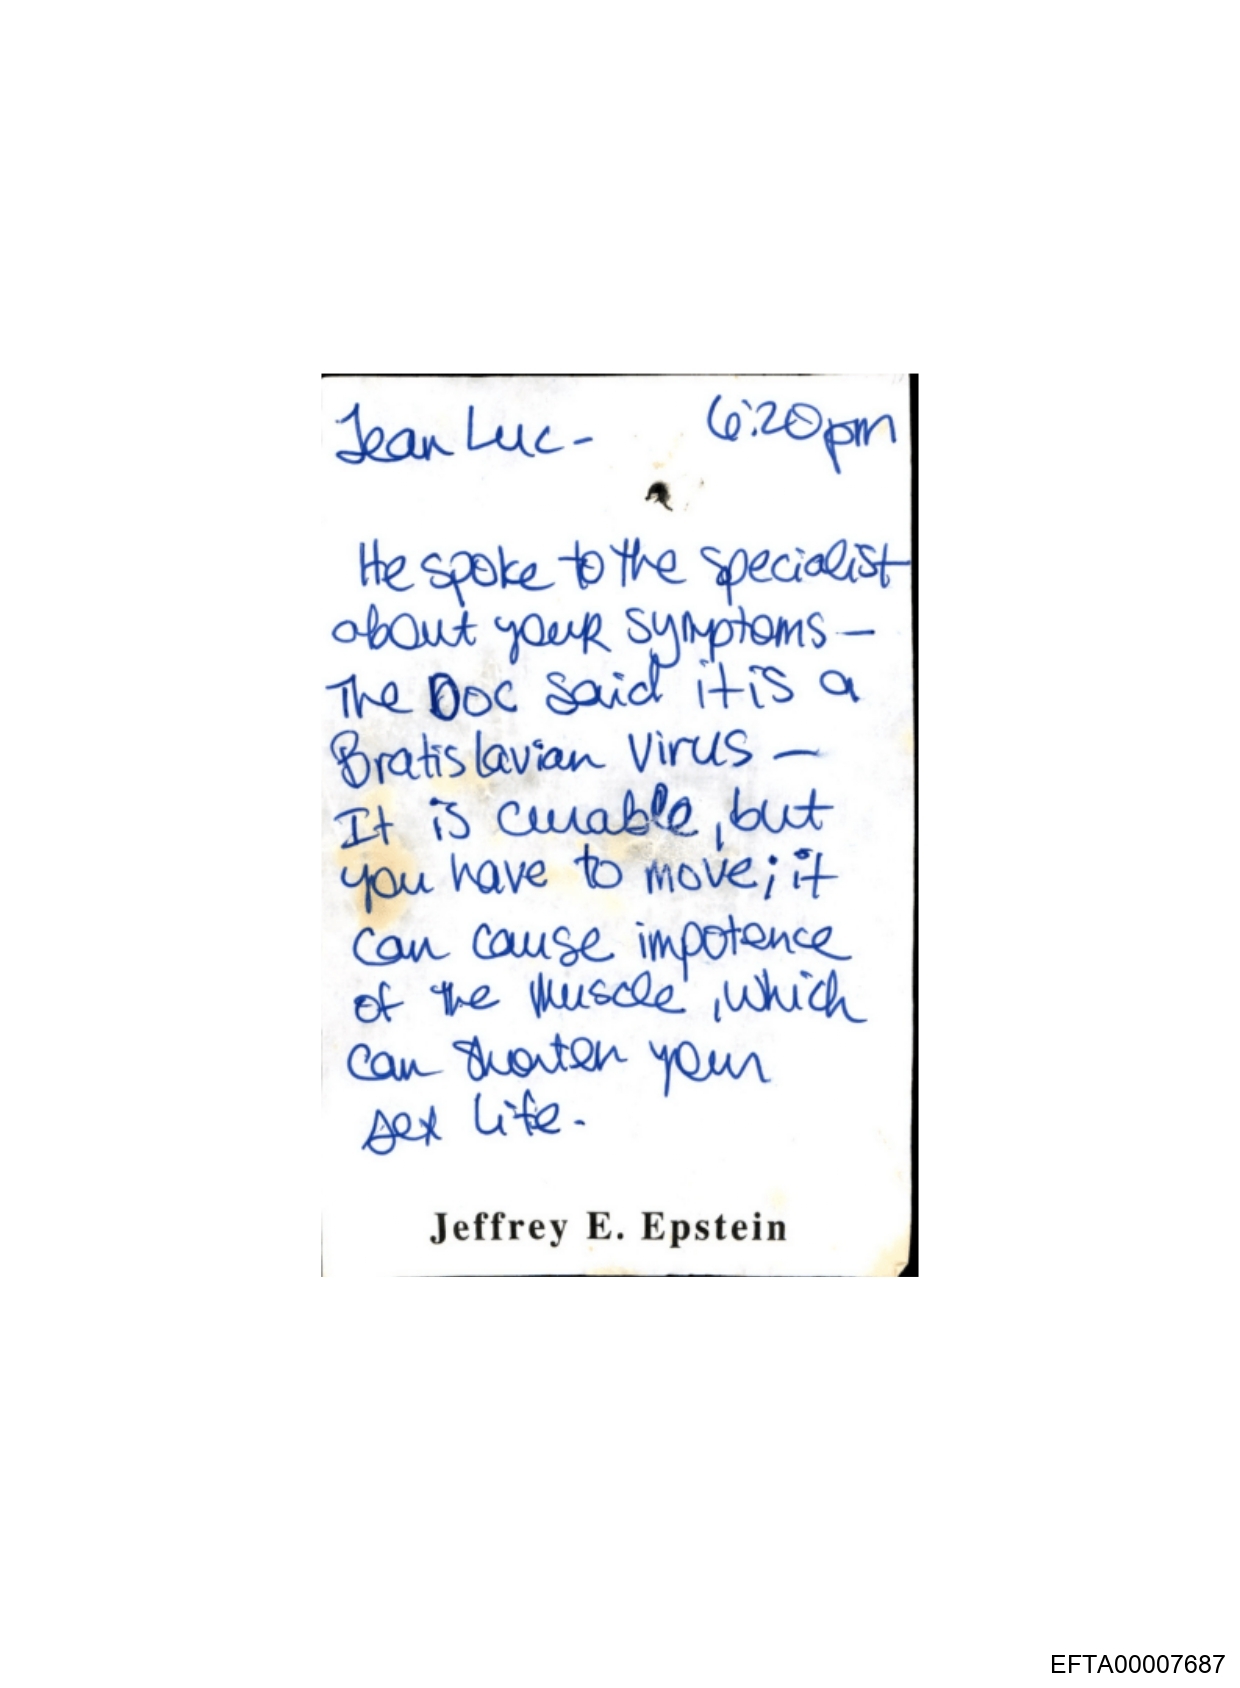 Jean Luc- 6:20pm
He spoke to the specialist
about your symptoms —
The Doc said it is a
Bratislavian Virus —
It is curable, but
you have to move; it
can cause impotence
of the muscle, which
can shorten your
sex life.
Jeffrey E. Epstein
EFTA00007687